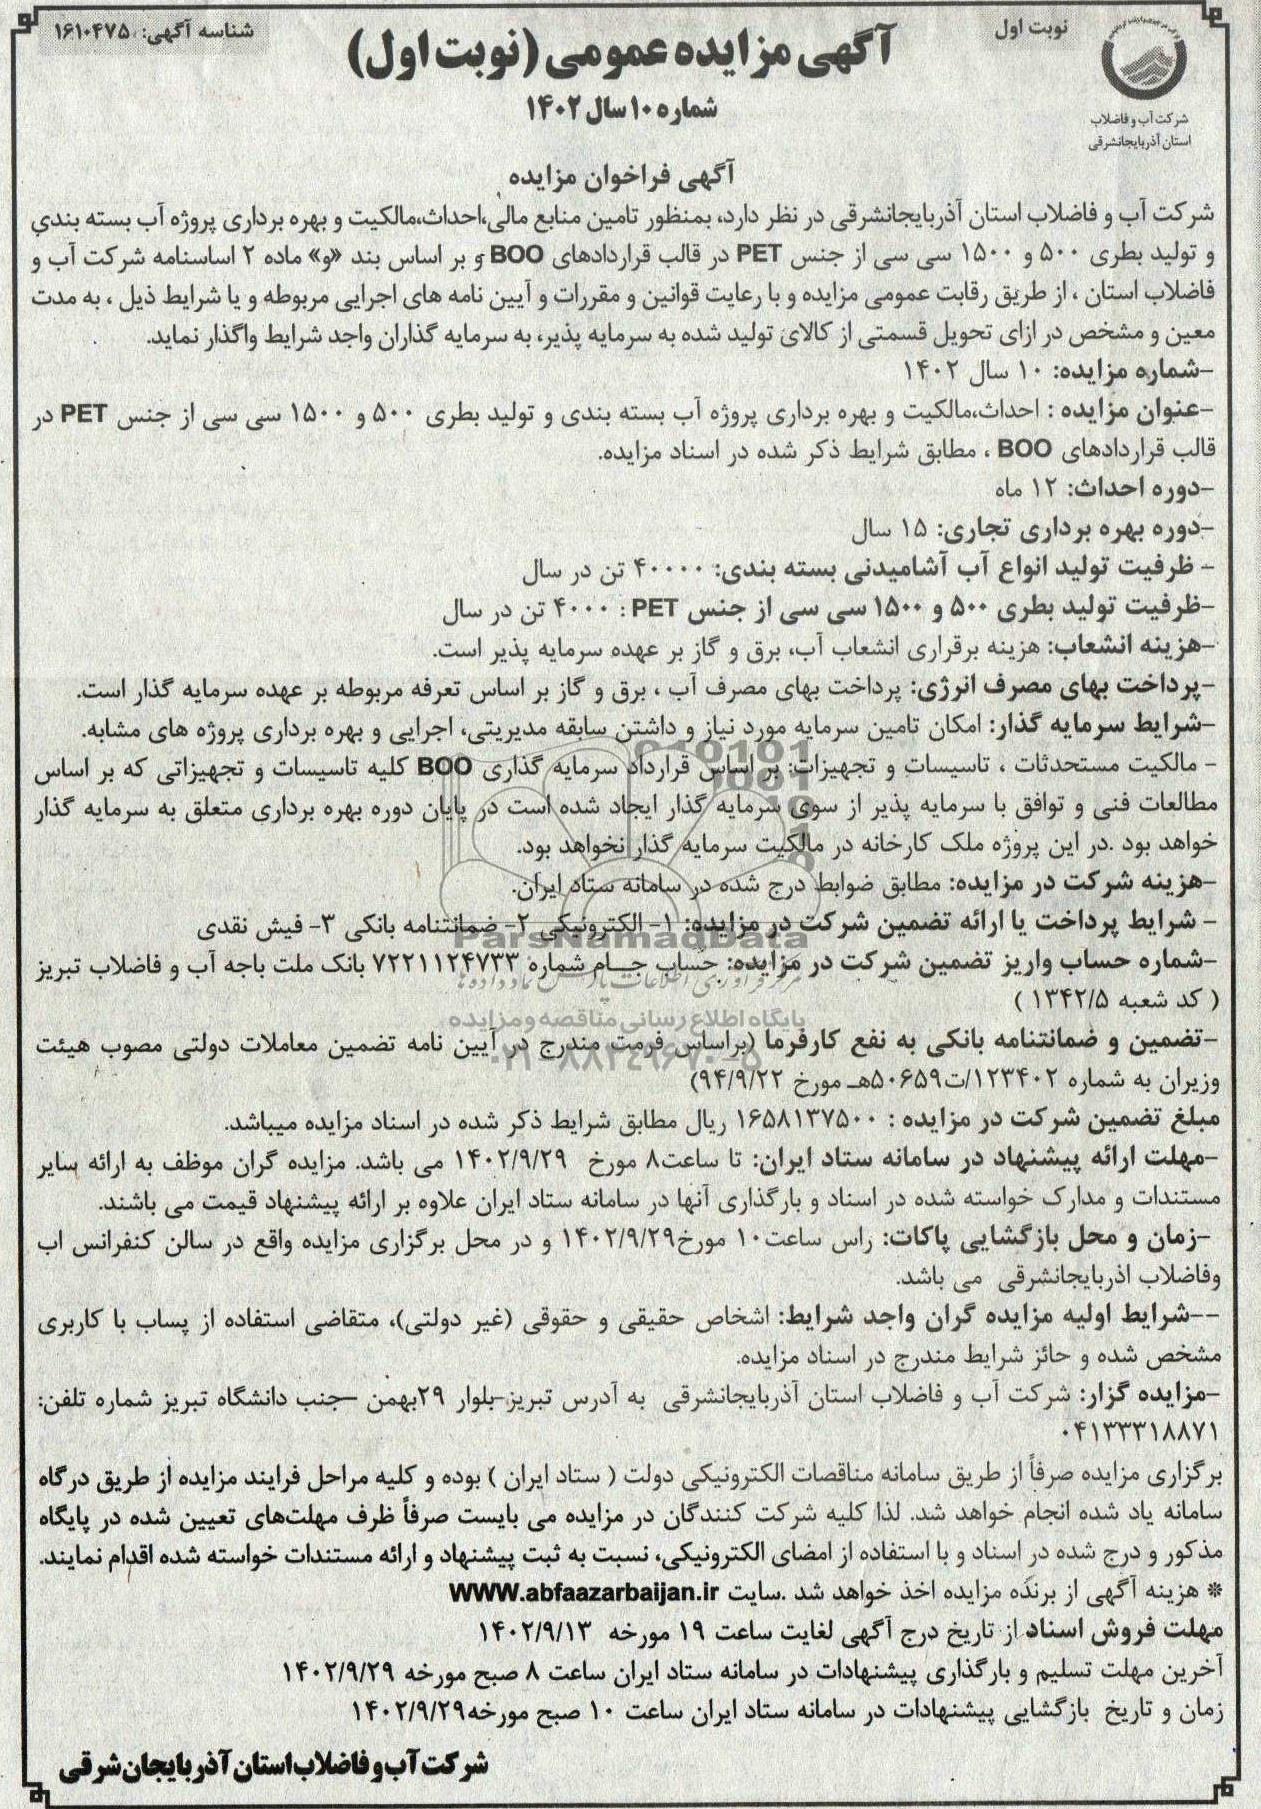 نوبت اول
شناسه آگهی: ۱۶۱۰۴۷۵
آگهی مزایده عمومی (نوبت اول)
شماره ۱۰ سال ۱۴۰۲
شرکت آب و فاضلاب
استان آذربایجانشرقی
آگهی فراخوان مزایده
شرکت آب و فاضلاب استان آذربایجانشرقی در نظر دارد، بمنظور تامین منابع مالی،احداث،مالکیت و بهره برداری پروژه آب بسته بندی
و تولید بطری ۵۰۰ و ۱۵۰۰ سی سی از جنس PET در قالب قراردادهای BOO و بر اساس بند «و» ماده ۲ اساسنامه شرکت آب و
فاضلاب استان ، از طریق رقابت عمومی مزایده و با رعایت قوانین و مقررات و آیین نامه های اجرایی مربوطه و یا شرایط ذیل ، به مدت
معین و مشخص در ازای تحویل قسمتی از کالای تولید شده به سرمایه پذیر، به سرمایه گذاران واجد شرایط واگذار نماید.
-شماره مزایده: ۱۰ سال ۱۴۰۲
-عنوان مزایده : احداث،مالکیت و بهره برداری پروژه آب بسته بندی و تولید بطری ۵۰۰ و ۱۵۰۰ سی سی از جنس PET در
قالب قراردادهای BOO ، مطابق شرایط ذکر شده در اسناد مزایده.
-دوره احداث: ۱۲ ماه
-دوره بهره برداری تجاری: ۱۵ سال
- ظرفیت تولید انواع آب آشامیدنی بسته بندی: ۴۰۰۰۰ تن در سال
-ظرفیت تولید بطری ۵۰۰ و ۱۵۰۰ سی سی از جنس PET : ۴۰۰۰ تن در سال
-هزینه انشعاب: هزینه برقراری انشعاب آب، برق و گاز بر عهده سرمایه پذیر است.
-پرداخت بهای مصرف انرژی: پرداخت بهای مصرف آب ، برق و گاز بر اساس تعرفه مربوطه بر عهده سرمایه گذار است.
-شرایط سرمایه گذار: امکان تامین سرمایه مورد نیاز و داشتن سابقه مدیریتی، اجرایی و بهره برداری پروژه های مشابه.
- مالکیت مستحدثات ، تاسیسات و تجهیزات: بر اساس قرارداد سرمایه گذاری BOO کلیه تاسیسات و تجهیزاتی که بر اساس
مطالعات فنی و توافق با سرمایه پذیر از سوی سرمایه گذار ایجاد شده است در پایان دوره بهره برداری متعلق به سرمایه گذار
خواهد بود .در این پروژه ملک کارخانه در مالکیت سرمایه گذار نخواهد بود.
-هزینه شرکت در مزایده: مطابق ضوابط درج شده در سامانه ستاد ایران.
- شرایط پرداخت یا ارائه تضمین شرکت در مزایده: ۱- الکترونیکی ۲- ضمانتنامه بانکی ۳- فیش نقدی
ParsNamadData
-شماره حساب واریز تضمین شرکت در مزایده: حساب جـــام شماره ۷۲۲۱۱۲۴۷۳۳ بانک ملت باجه آب و فاضلاب تبریز
( کد شعبه ۱۳۴۲/۵ )
پایگاه اطلاع رسانی مناقصه و مزایده
-تضمین و ضمانتنامه بانکی به نفع کارفرما (براساس فرمت مندرج در آیین نامه تضمین معاملات دولتی مصوب هیئت
۰۲۱-۸۸۳۴۹۶۷۰-۵
وزیران به شماره ۱۲۳۴۰۲/ت۵۰۶۵۹هـ مورخ ۹۴/۹/۲۲)
مبلغ تضمین شرکت در مزایده : ۱۶۵۸۱۳۷۵۰۰ ریال مطابق شرایط ذکر شده در اسناد مزایده میباشد.
-مهلت ارائه پیشنهاد در سامانه ستاد ایران: تا ساعت۸ مورخ ۱۴۰۲/۹/۲۹ می باشد. مزایده گران موظف به ارائه سایر
مستندات و مدارک خواسته شده در اسناد و بارگذاری آنها در سامانه ستاد ایران علاوه بر ارائه پیشنهاد قیمت می باشند.
-زمان و محل بازگشایی پاکات: راس ساعت۱۰ مورخ۱۴۰۲/۹/۲۹ و در محل برگزاری مزایده واقع در سالن کنفرانس اب
وفاضلاب اذربایجانشرقی می باشد.
--شرایط اولیه مزایده گران واجد شرایط: اشخاص حقیقی و حقوقی (غیر دولتی)، متقاضی استفاده از پساب با کاربری
مشخص شده و حائز شرایط مندرج در اسناد مزایده.
-مزایده گزار: شرکت آب و فاضلاب استان آذربایجانشرقی به آدرس تبریز-بلوار ۲۹بهمن -جنب دانشگاه تبریز شماره تلفن:
۰۴۱۳۳۳۱۸۸۷۱
برگزاری مزایده صرفاً از طریق سامانه مناقصات الکترونیکی دولت ( ستاد ایران ) بوده و کلیه مراحل فرایند مزایده از طریق درگاه
سامانه یاد شده انجام خواهد شد. لذا کلیه شرکت کنندگان در مزایده می بایست صرفاً ظرف مهلت‌های تعیین شده در پایگاه
مذکور و درج شده در اسناد و با استفاده از امضای الکترونیکی، نسبت به ثبت پیشنهاد و ارائه مستندات خواسته شده اقدام نمایند.
* هزینه آگهی از برنده مزایده اخذ خواهد شد .سایت WWW.abfaazarbaijan.ir
مهلت فروش اسناد از تاریخ درج آگهی لغایت ساعت ۱۹ مورخه ۱۴۰۲/۹/۱۳
آخرین مهلت تسلیم و بارگذاری پیشنهادات در سامانه ستاد ایران ساعت ۸ صبح مورخه ۱۴۰۲/۹/۲۹
زمان و تاریخ بازگشایی پیشنهادات در سامانه ستاد ایران ساعت ۱۰ صبح مورخه۱۴۰۲/۹/۲۹
شرکت آب و فاضلاب استان آذربایجان شرقی